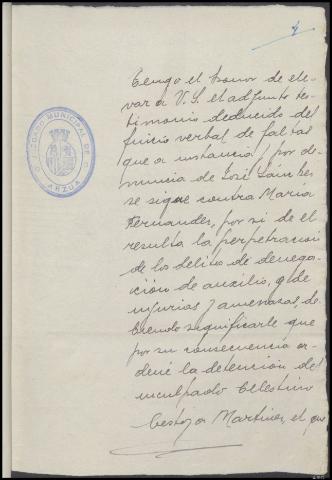 4
JUZGADO MUNICIPAL DE
ARZUA
Tengo el honor de ele-
var a V.S. el adjunto tes-
timonio deducido del
juicio verbal de faltas
que a instancia, por de-
nuncia de José Sánches
se sigue contra María
Fernandes, por si de el
resulta la perpetracion
de los delitos de denega-
ción de auxilio, y de
injurias y amenazas, de-
biendo significarle que
por su consecuencia or-
dené la detención del
inculpado Celestino
Martínez, el que